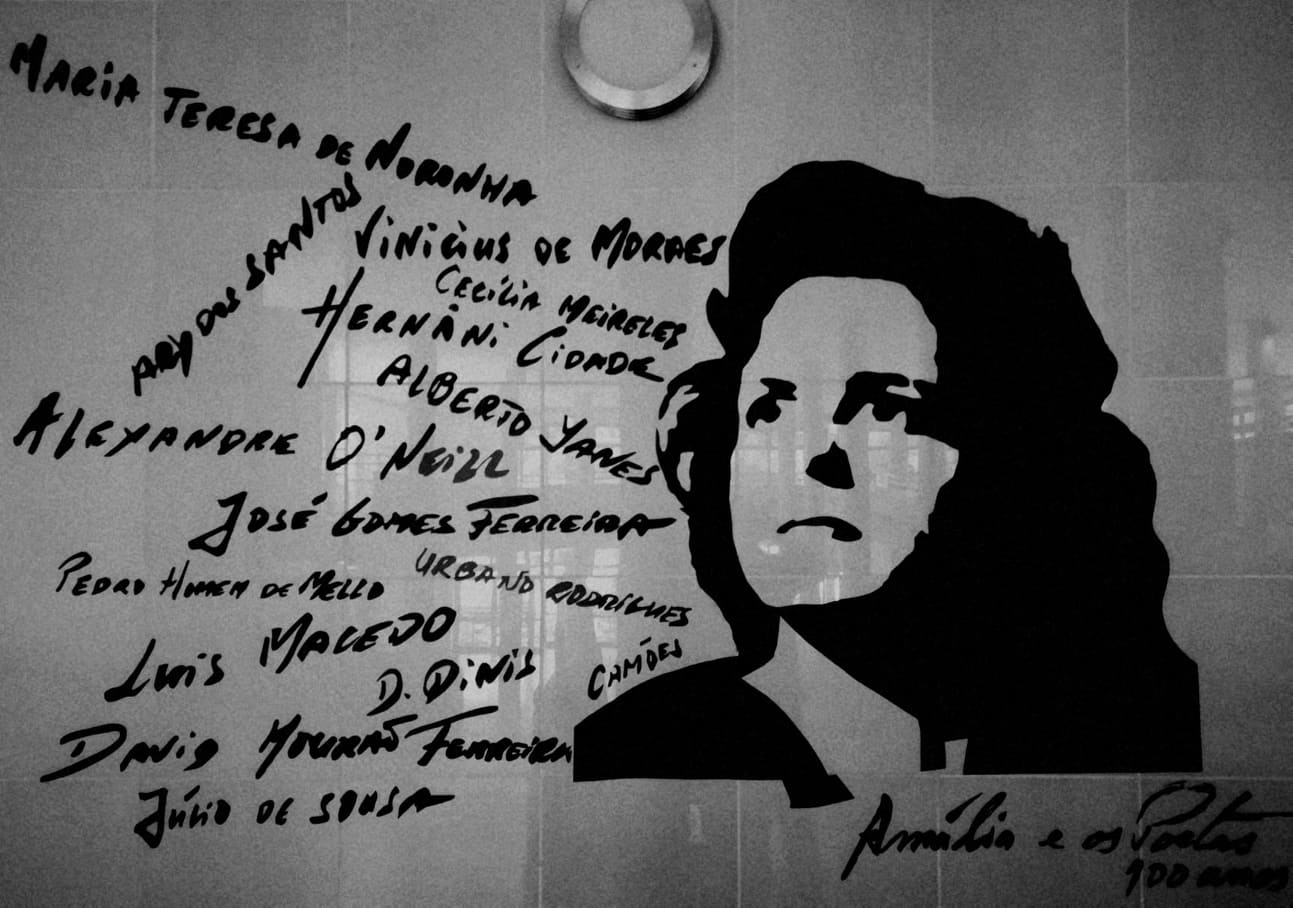 MARIA TERESA DE NORONHA
ARY DOS SANTOS
VINICIUS DE MORAES
CECÍLIA MEIRELES
HERNÂNI CIDADE
ALBERTO JANES
ALEXANDRE O'NEILL
JOSÉ GOMES FERREIRA
PEDRO HOMEM DE MELLO
URBANO RODRIGUES
LUIS MACEDO
CAMÕES
D. DINIS
DAVID MOURÃO FERREIRA
JÚLIO DE SOUSA
Amália e os Poetas
100 anos